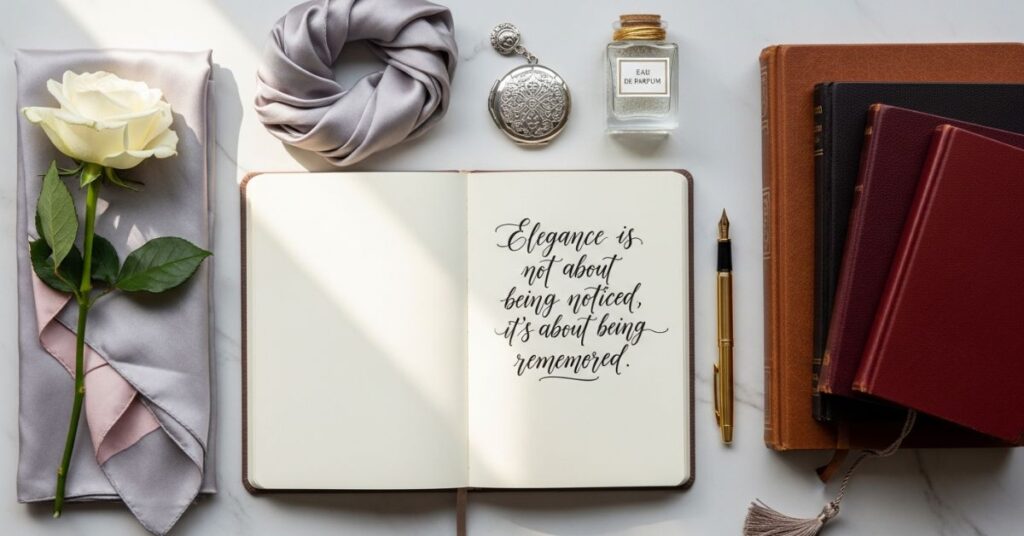 EAU
DE PARFUM
Elegance is
not about
being noticed,
it's about being
rememored.